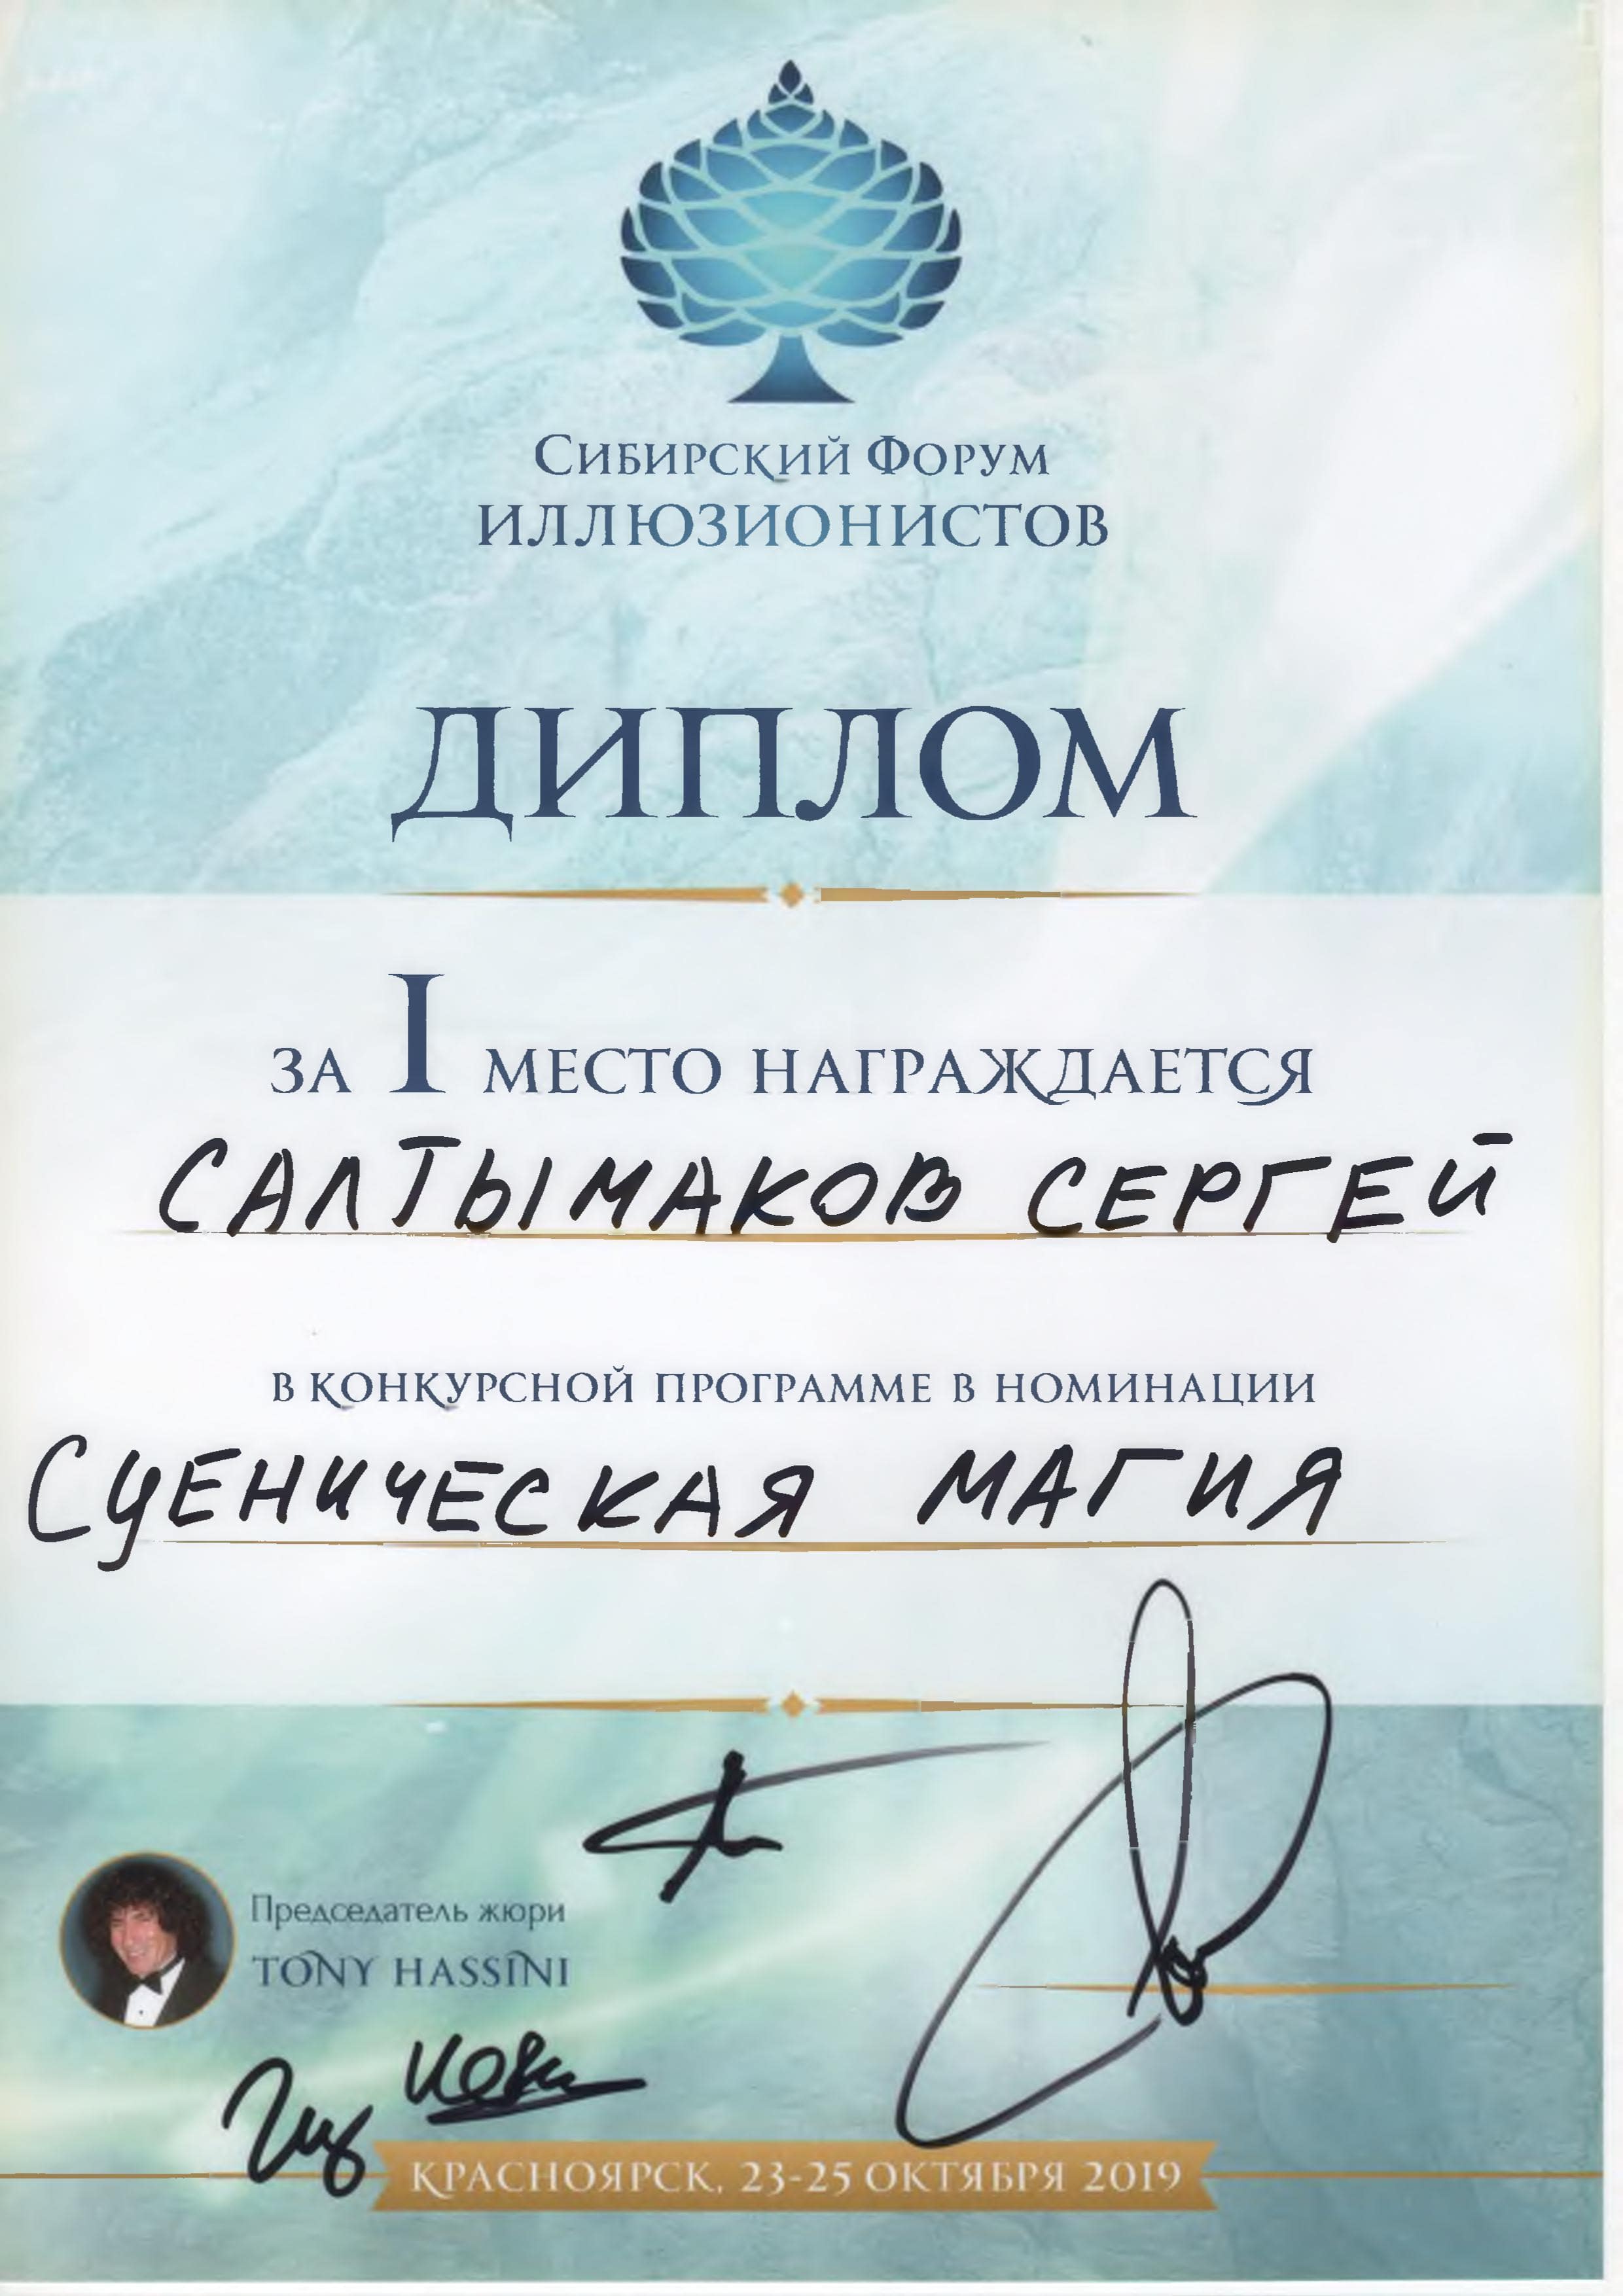 Сибирский Форум
ИЛЛЮЗИОНИСТОВ
ДИПЛОМ
ЗА I МЕСТО НАГРАЖДАЕТСЯ
САЛТЫМАКОВ СЕРГЕЙ
В КОНКУРСНОЙ ПРОГРАММЕ В НОМИНАЦИИ
СЦЕНИЧЕСКАЯ МАГИЯ
Председатель жюри
TONY HASSINI
КРАСНОЯРСК, 23-25 ОКТЯБРЯ 2019